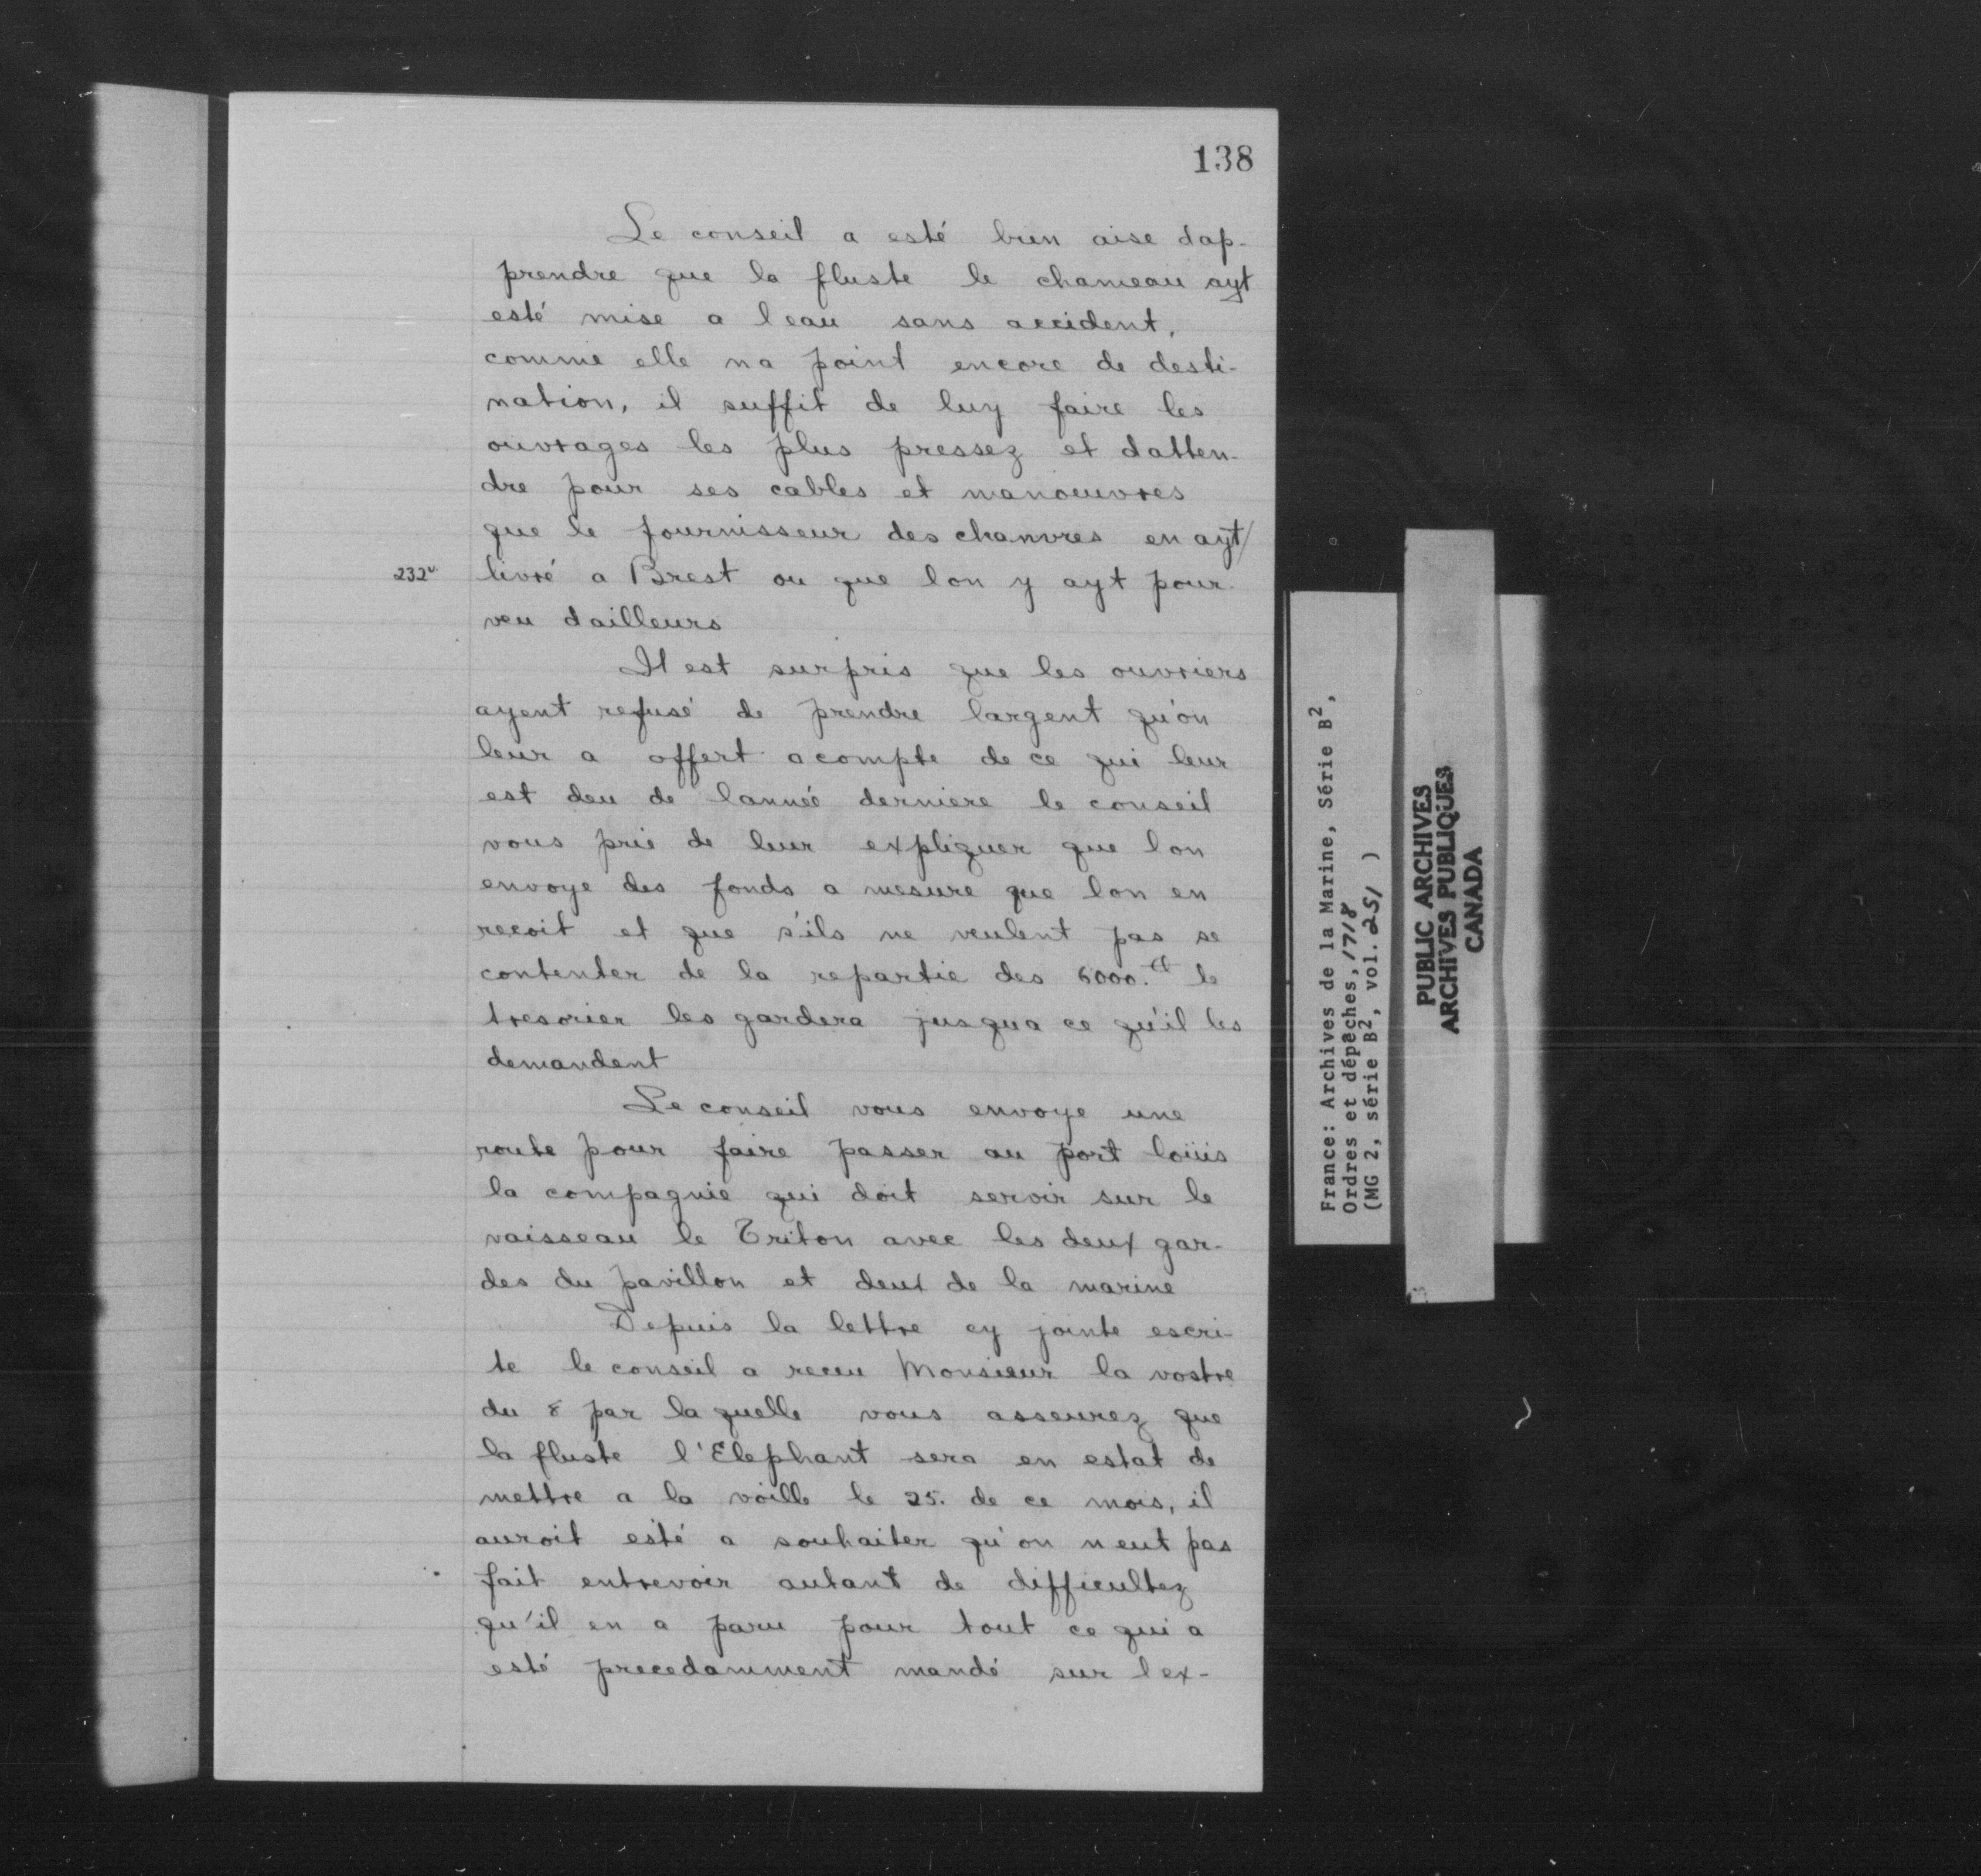 138
Le conseil a esté bien aise dap-
prendre que la fluste le chameau ayt
esté mise a leau sans accident,
comme elle na point encore de desti-
nation, il suffit de luy faire les
ouvrages les plus pressez et datten-
dre pour ses cables et manoeuvres
que le fournisseur des chanvres en ayt/
232v livré a Brest ou que lon y ayt pour-
veu dailleurs
Il est surpris que les ouvriers
ayent refusé de prendre largent qu'on
leur a offert acompte de ce qui leur
est deu de lannée derniere le conseil
vous prie de leur expliquer que lon
envoye des fonds a mesure que lon en
recoit et que s'ils ne veulent pas se
contenter de la repartie des 6000.tt le
tresorier les gardera jusqua ce qu'il les
demandent
Le conseil vous envoye une
route pour faire passer au port loüis
la compagnie qui doit servir sur le
vaisseau le Triton avec les deux gar-
des du pavillon et deux de la marine
Depuis la lettre cy jointe escri-
te le conseil a receu Monsieur la vostre
du 8 par laquelle vous asseurez que
la fluste l'Elephant sera en estat de
mettre a la voille le 25. de ce mois, il
auroit esté a souhaiter qu'on neut pas
fait entrevoir autant de difficultez
qu'il en a paru pour tout ce qui a
esté precedamment mandé sur lex-
France: Archives de la Marine, Série B2,
Ordres et dépêches, 1718
(MG 2, série B2, vol. 251 )
PUBLIC ARCHIVES
ARCHIVES PUBLIQUES
CANADA